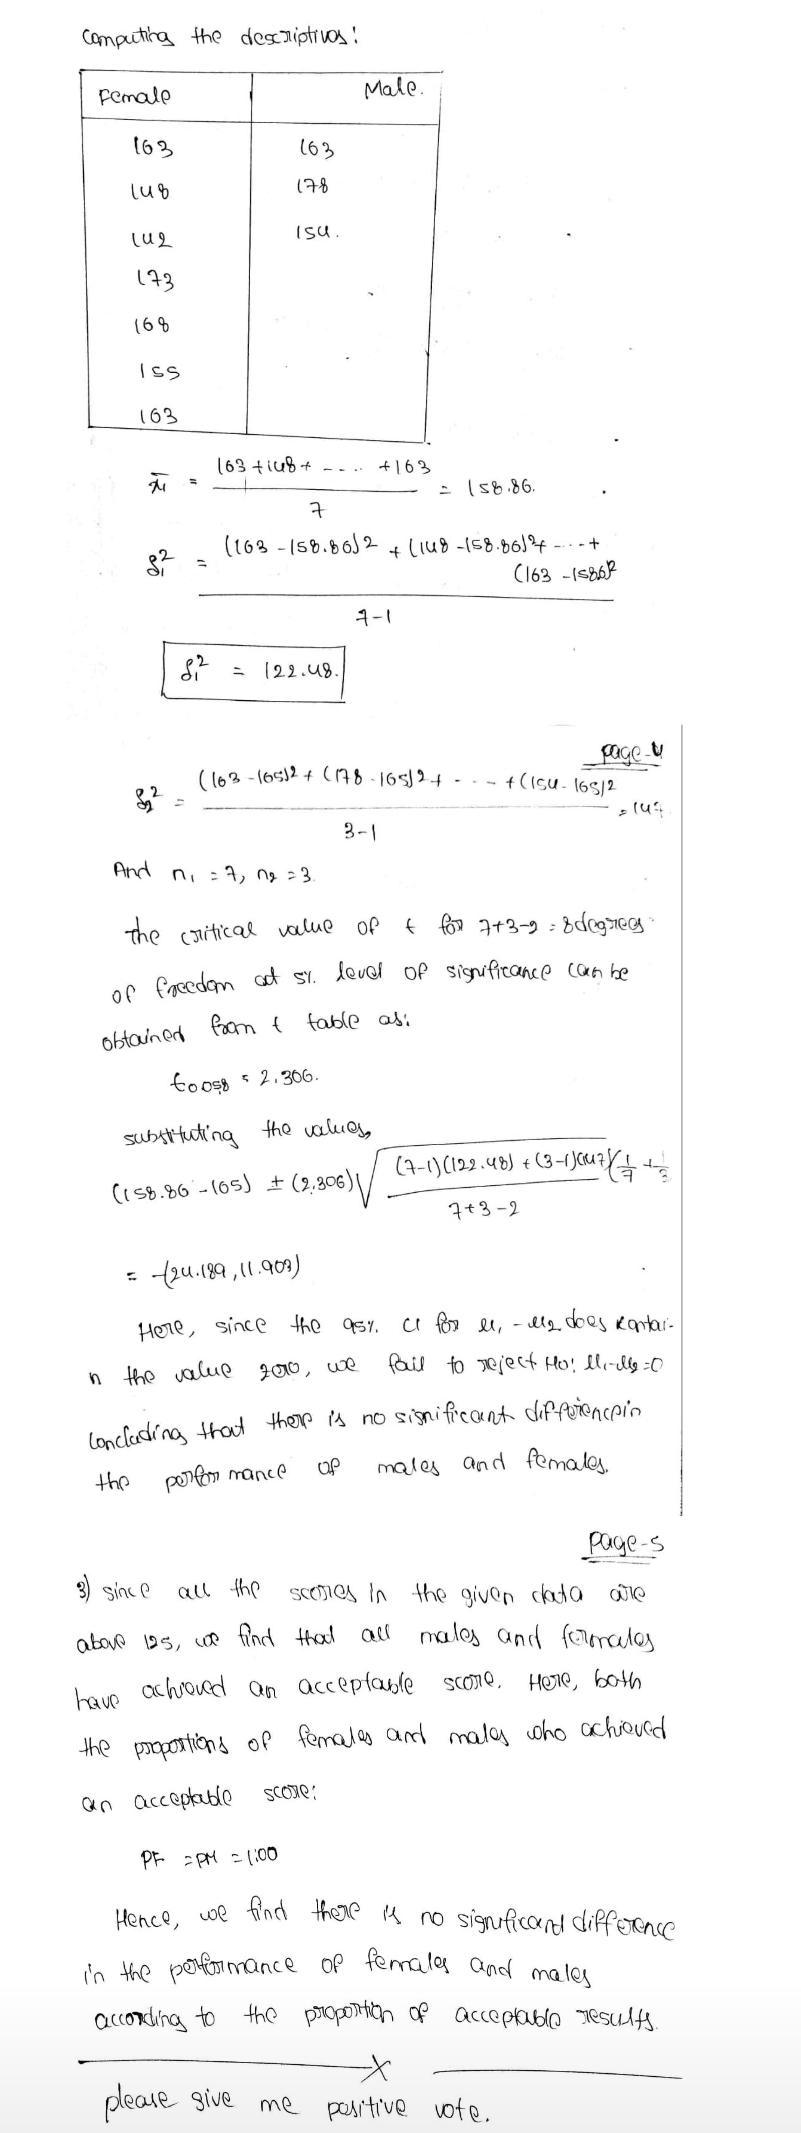 Computing the descriptives:
Female Male.
163 163
148 178
142 154.
173
168
155
163
x̄₁ = (163 + 148 + - - .. + 163) / 7 = 158.86.
S₁² = ((163 - 158.86)2 + (148 - 158.86)2 + - - - + (163 - 15886)2) / 7-1
S₁² = 122.48.
page-4
S₂² = ((163 - 165)2 + (178 - 165)2 + - - - + (154 - 165)2) / 3-1 = 147
And n₁ = 7, n₂ = 3.
the critical value of t for 7+3-2 = 8 degrees
of freedom at 5% level of significance can be
obtained from t table as:
t0.058 = 2.306.
substituting the values,
(158.86 - 165) ± (2.306) √ ((7-1)(122.48) + (3-1)(147) / 7+3-2) (1/7 + 1/3
= -(24.189, 11.909)
Here, since the 95% CI for μ₁ - μ₂ does contai-
n the value zero, we fail to reject H0: μ₁-μ₂=0
Concluding that there is no significant difference in
the performance of males and females.
page-5
3) since all the scores in the given data are
above 125, we find that all males and females
have achieved an acceptable score. Here, both
the proportions of females and males who achieved
an acceptable score:
PF = PM = 1.00
Hence, we find there is no significant difference
in the performance of females and males
according to the proportion of acceptable results.
X
please give me positive vote.